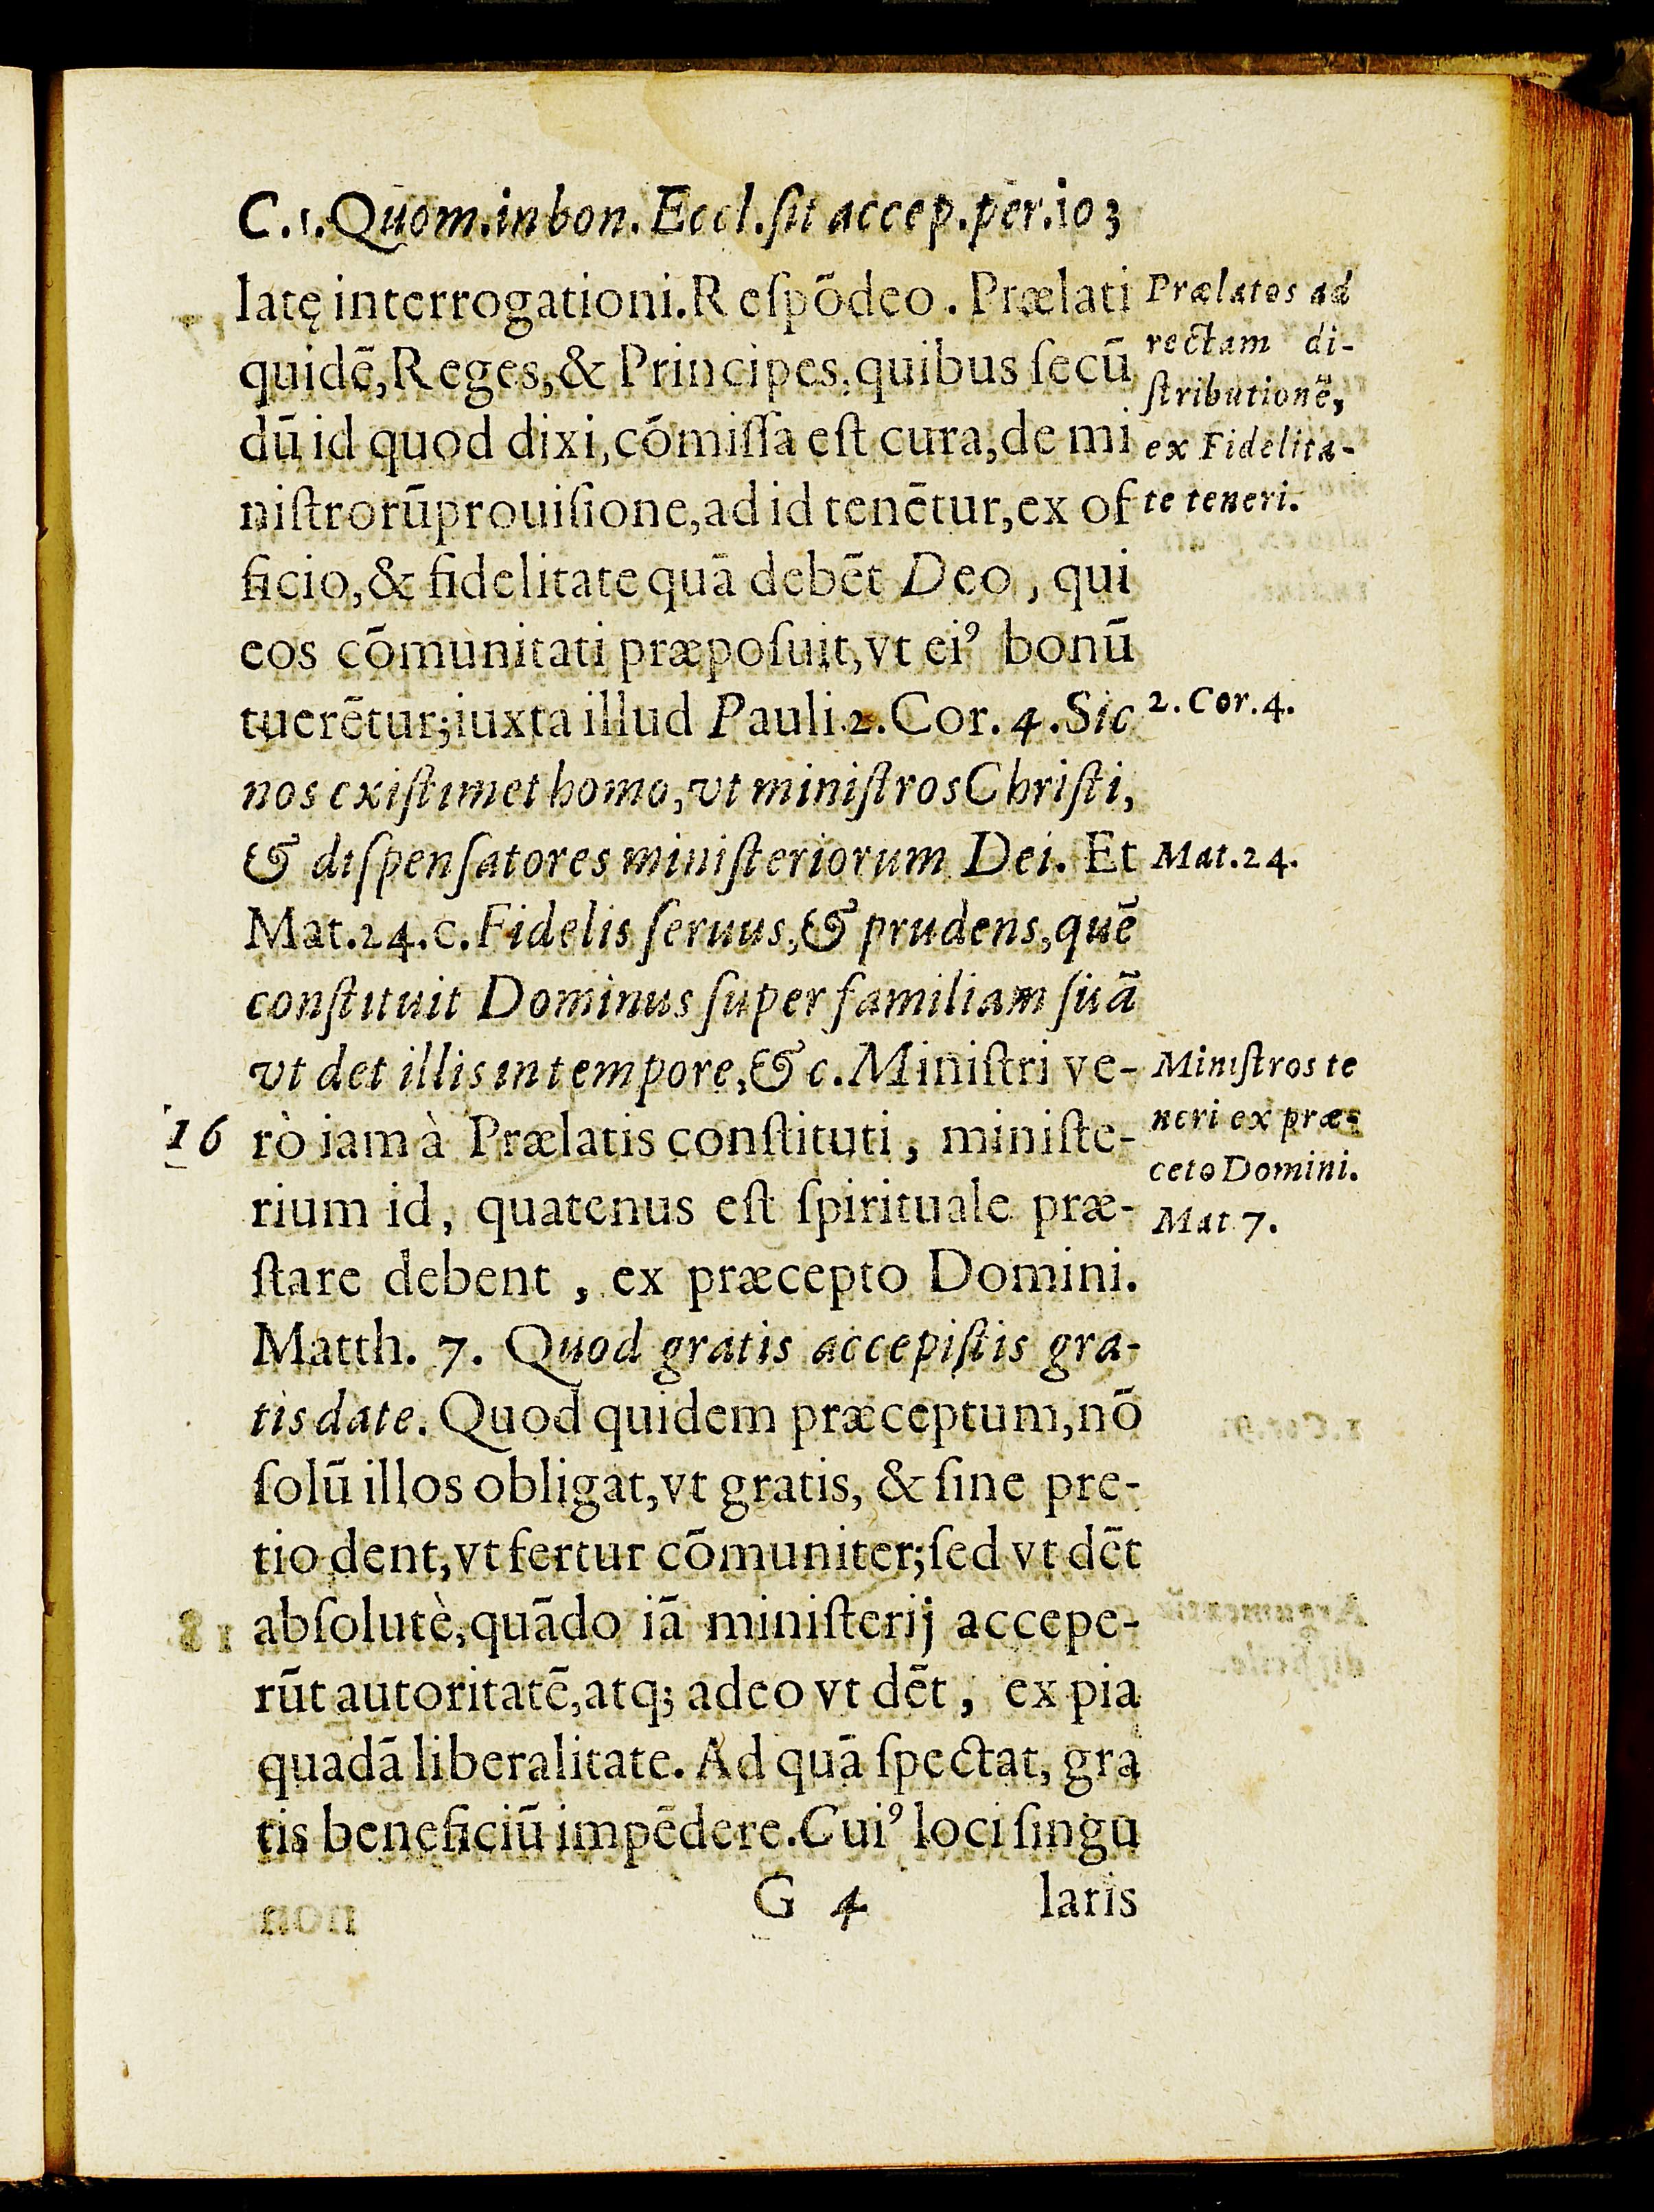 C.1.Quom.in bon.Eccl.ſit accep.per.103
latę interrogationi.Reſpōdeo. Prælati
quidē,Reges,& Principes,quibus ſecū
dū id quod dixi,cōmiſſa eſt cura,de mi
niſtrorūprouiſione,ad id tenētur,ex of
ficio,& fidelitate quā debēt Deo, qui
eos cōmunitati præpoſuit,vt ei⁹ bonū
tuerētur;iuxta illud Pauli.2.Cor.4.Sic
nos exiſtimet homo,vt miniſtros Chriſti,
& diſpenſatores miniſteriorum Dei. Et
Mat.24.c.Fidelis ſeruus,& prudens,quē
conſtituit Dominus ſuper familiam ſuā
vt det illis in tempore,&c.Miniſtri ve-
rò iam à Prælatis conſtituti, miniſte-
rium id, quatenus eſt ſpirituale præ-
ſtare debent, ex præcepto Domini.
Matth. 7. Quod gratis accepiſtis gra-
tis date. Quod quidem præceptum,nō
ſolū illos obligat,vt gratis, & ſine pre-
tio dent,vt fertur cōmuniter;ſed vt dēt
abſolutè,quādo iā miniſterij accepe-
rūt autoritatē,atq; adeo vt dēt, ex pia
quadā liberalitate. Ad quā ſpectat, gra
tis beneficiū impēdere.Cui⁹ loci ſingu
G 4 laris
Prælatos ad
rectam di-
ſtributionē,
ex Fidelita-
te teneri.
2.Cor.4.
Mat.24.
Miniſtros te
neri ex præ-
ceto Domini.
Mat 7.
16